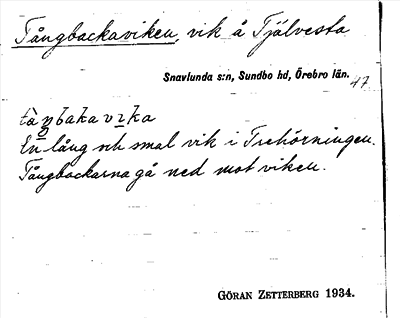 Tångbackaviken, vik å Tjälvesta
Snavlunda s:n, Sundbo hd, Örebro län.
47.
En lång och smal vik i Trehörningen.
Tångbackarna gå ned mot viken.
GÖRAN ZETTERBERG 1934.